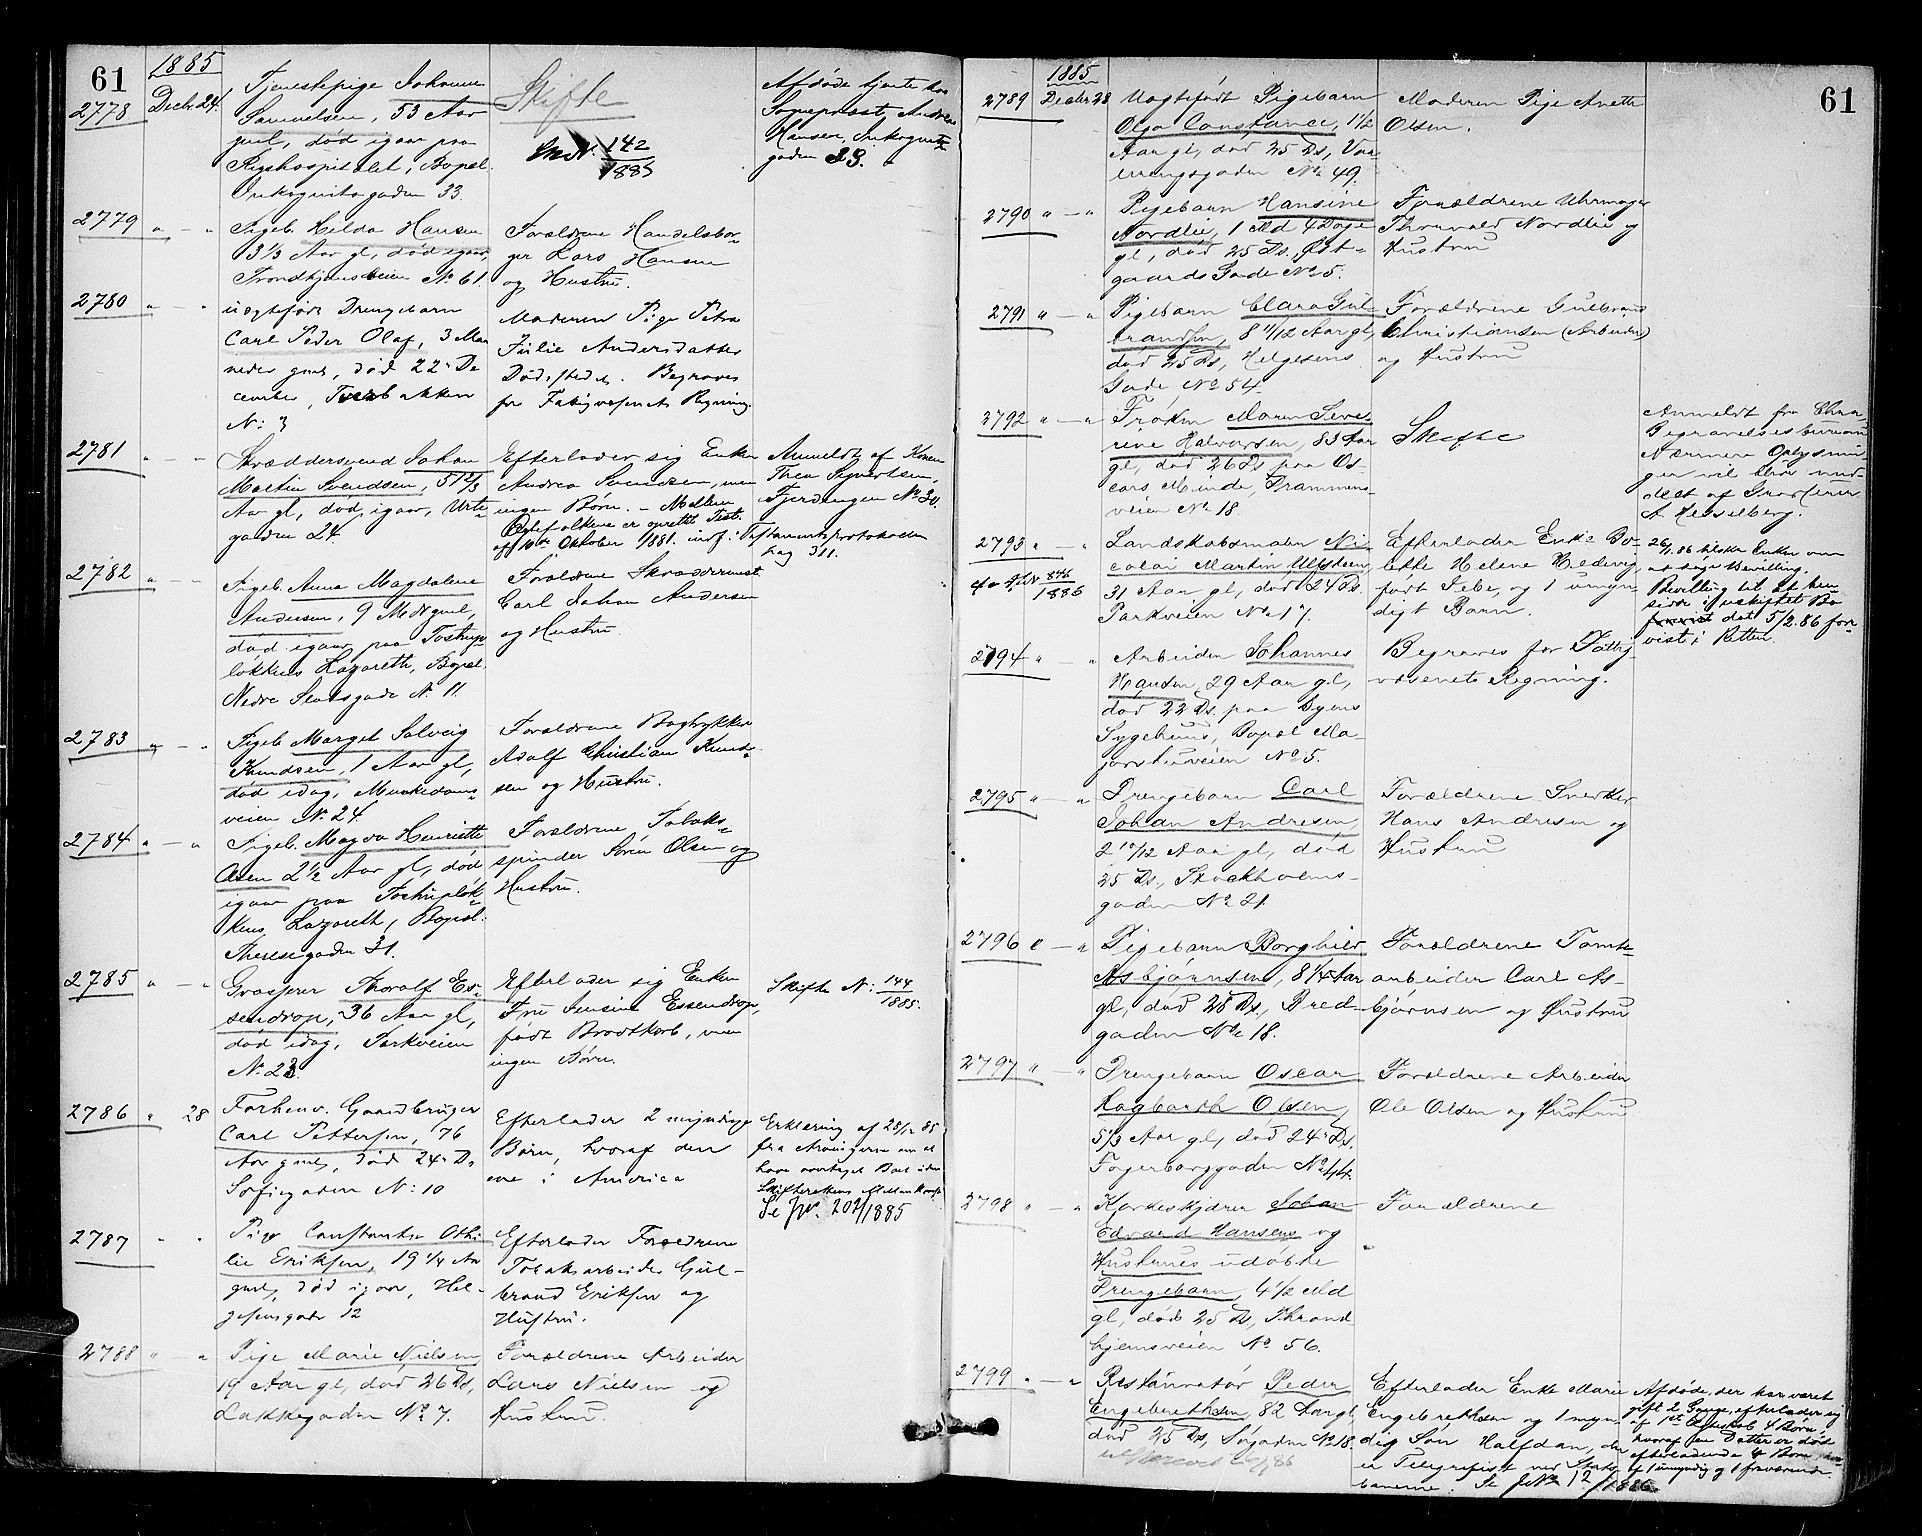 61
1885
2778
Decbr. 24.
Tjenestepige Johanne
Samuelsen, 53 Aar
gml, død igaar paa
Rigshospitalet, Bopæl
Inkognitogaden 33.
Skifte
142
1885
Afdøde tjente hos
Sognepræst Andreas
Hansen, Inkognito-
gaden 33.
2779
" — "
Pigeb. Hilda Hansen
3 1/3 Aar gl, død igaar,
Trondhjemsveien No 61.
Forældrene Handelsbor-
ger Lars Hansen
og Hustru.
2780
" — "
uægtefødt Drengebarn
Carl Peder Olaf, 3 Maa
neder gml, død 22 De
cember,
No: 3
Moderen Pige Petra
Julie Andersdatter
Dødsstedet. Begraves
for Fattigvæsenets Regning.
2781
" — "
Skræddersvend Johan
Martin Svendsen, 51 2/3
Aar gl, død igaar, Urte-
gaden 24.
Efterlader sig Enken
Andrea Svendsen, men
ingen Børn. – Mellem
Ægtefolkene er oprettet Test.
af 10de Oktober 1881. indf. i Testamentsprotokollen
Pag 311.
Anmeldt af Konen
Thea Syvertsen,
Fjerdingen No 30.
2782
" — "
Pigeb. Anna Magdalena
Andersen, 9 Mdr gml,
død igaar paa Tostrup-
løkkens Lazareth, Bopæl
Nedre Slotsgade No 11.
Forældrene Skræddermest.
Carl Johan Andersen
og Hustru.
2783
" — "
Pigeb. Margit Solveig
Knudsen, 1 Aar gl,
død idag, Munkedams-
veien No 24.
Forældrene Bogtrykker
Adolf Christian Knud-
sen og Hustru.
2784
" — "
Pigeb. Magda Henriette
Olsen 2 1/2 Aar gl, død
igaar paa Tostrupløk-
kens Lazareth, Bopæl
Theresegaden 31.
Forældrene Tobaks-
spinder Søren Olsen og
Hustru.
2785
" — "
Grosserer Thorolf Es-
sendrop, 36 Aar gl,
død idag, Parkveien
No 23.
Efterlader sig Enken
Fru Jensine Essendrop,
født Brodtkorb, men
ingen Børn.
Skifte No: 144
1885.
2786
" 28
Forhenv. Gaardbruger
Carl Pettersen, 76
Aar gml, død 24 Ds
Sofiegaden No: 10
Efterlader 2 myndige
Børn, hvoraf den
ene i America
Erklæring af 28/12 85
fra Arvingerne om at
have overtaget Boet uden
Skifterettens Mellemkomst
Se JNo. 202/1885
2787
" "
Pige Constantse Othi-
lie Eriksen, 19 1/4 Aar
gml, død igaar, Hel-
gesensgade 12
Efterlader Forældrene
Tobaksarbeider Gul-
brand Eriksen og
Hustru.
2788
" "
Pige Marie Nielsen
19 Aar gl, død 26 Ds,
Lakkegaden No 7.
Forældrene Arbeider
Lars Nielsen og
Hustru.
61
1885
2789
Decbr 28
Uægtefødt Pigebarn
Olga Constance, 1 1/2
Aar gl, død 25 Ds, Vaa-
lerengsgaden No 49.
Moderen Pige Anette
Olsen.
2790
" — "
Pigebarn Hansine
Nordlie, 1 Md 4 Dage
gl, død 25 Ds, Øst-
gaards Gade No 5.
Forældrene Uhrmager
Thorvald Nordlie og
Hustru
2791
" — "
Pigebarn Clara Gul-
brandsen, 8 11/12 Aar gl,
død 25 Ds, Helgesens
Gade No 54.
Forældrene Gulbrand
Christiansen (Arbeider)
og Hustru
2792
" — "
Frøken Maren Seve-
rine Halvorsen, 83 Aar
gl, død 26 Ds paa Os-
cars Minde, Drammens-
veien No 18.
Skifte
Anmeldt fra Chra
Begravelsesbureau
Nærmere Oplysnin-
ger vil blive med-
delt af Grosserer
A. Hesselberg.
2793
" — "
846
1886
Landskabsmaler Ni-
colai Martin Ulfsten,
31 Aar gl, død 24 Ds.
Parkveien No 17.
Efterlader Enke Bo-
lette Helene Hedevig,
født Sebe, og 1 umyn-
digt Barn.
26/1.86 tilskr. Enken om
at søge Bevilling.
Bevilling til at hen
sidde i uskiftet Bo
dat 5/2.86 fore-
vist i Retten.
2794
" — "
Arbeider Johannes
Hansen, 29 Aar gl,
død 22 Ds. paa Byens
Sygehuus, Bopæl Ma-
jorstuveien No 5.
Begraves for Fattig-
væsenets Regning.
2795
" — "
Drengebarn Carl
Johan Andresen,
2 10/12 Aar gl, død
25 Ds, Stockholms-
gaden No 21.
Forældrene Snerker
Hans Andresen og
Hustru
2796
" — "
Pigebarn Borghild
Asbjørnsen, 8 1/4 Aar
gl, død 28 Ds, Bred-
gaden No 18.
Forældrene Tomt-
arbeider Carl As-
bjørnsen og Hustru
2797
" — "
Drengebarn Oscar
Hagbarth Olsen,
5 1/3 Aar gl, død 24 Ds,
Fagerborggaden No 44.
Forældrene Arbeider
Ole Olsen og Hustru.
2798
" — "
Kjører Johan
Edvard Hansens og
Hustrues udøbte
Drengebarn, 4 1/2 Md
gl, død 25 Ds, Thrond-
hjemsveien No 56.
Forældrene
"
2799
" — "
Restauratør Peder
Engebrethsen, 82 Aar gl,
død 25 Ds, Søgaden No 18.
Efterlader Enke Marie
Engebrethsen og 1 myn-
dig Søn Halfdan, der
er Telegrafist ved Stats-
banerne. Se JNo 12/1886
Afdøde, der har været
gift 2 Gange, efterlader sig
af 1ste Ægteskab 4 Børn,
hvoraf en Datter er død
efterladende 4 Børn, hvor-
af 1 umyndig og 1 fraværende.